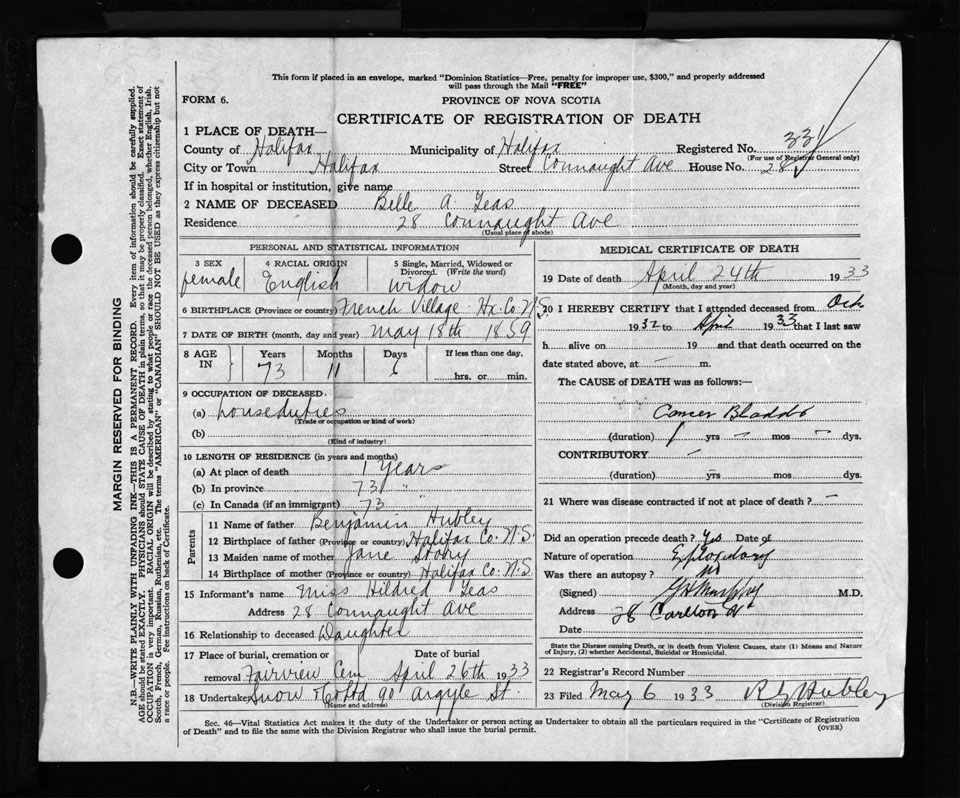 This form if placed in an envelope, marked "Dominion Statistics—Free, penalty for improper use, $300," and properly addressed
will pass through the Mail "FREE"
FORM 6.
PROVINCE OF NOVA SCOTIA
CERTIFICATE OF REGISTRATION OF DEATH
1 PLACE OF DEATH—
County of Halifax Municipality of Halifax Registered No. 331
(For use of Registrar General only)
City or Town Halifax Street Connaught Ave House No. 28
If in hospital or institution, give name
2 NAME OF DECEASED Belle A Teas
Residence 28 Connaught Ave
(Usual place of abode)
PERSONAL AND STATISTICAL INFORMATION
3 SEX 4 RACIAL ORIGIN 5 Single, Married, Widowed or Divorced. (Write the word)
female English widow
6 BIRTHPLACE (Province or country) French Village Hx. Co. N.S
7 DATE OF BIRTH (month, day and year) May 18th 1859
8 AGE IN Years Months Days If less than one day,
73 11 6 hrs. or min.
9 OCCUPATION OF DECEASED
(a) house duties
(Trade or occupation or kind of work)
(b)
(Kind of industry)
10 LENGTH OF RESIDENCE (in years and months)
(a) At place of death 1 Years
(b) In province 73 "
(c) In Canada (if an immigrant) 73
Parents
11 Name of father Benjamin Hubley
12 Birthplace of father (Province or country) Halifax Co. N.S.
13 Maiden name of mother Jane Story
14 Birthplace of mother (Province or country) Halifax Co. N.S.
15 Informant's name Miss Hildred Teas
Address 28 Connaught Ave
16 Relationship to deceased Daughter
17 Place of burial, cremation or Date of burial
removal Fairview Cem April 26th 1933
18 Undertaker Snow & Co Ltd 90 Argyle St.
(Name and address)
MEDICAL CERTIFICATE OF DEATH
19 Date of death April 24th 1933
(Month, day and year)
20 I HEREBY CERTIFY that I attended deceased from Oct
1932 to April 1933 that I last saw
h alive on 19 and that death occurred on
date stated above, at — m.
The CAUSE OF DEATH was as follows:—
Cancer Bladder
(duration) 1 yrs — mos — dys.
CONTRIBUTORY —
(duration) — yrs mos dys.
21 Where was disease contracted if not at place of death? —
Did an operation precede death? Yes Date of
Nature of operation Exploratory
Was there an autopsy? no
(Signed) G H Murphy M.D.
Address 28 Carlton St
Date
State the Disease causing Death, or in death from Violent Causes, state (1) Means and Nature
of Injury, (2) whether Accidental, Suicidal or Homicidal.
22 Registrar's Record Number
23 Filed May 6 1933 Hubley
(Division Registrar)
Sec. 46—Vital Statistics Act makes it the duty of the Undertaker or person acting as Undertaker to obtain all the particulars required in the "Certificate of Registration
of Death" and to file the same with the Division Registrar who shall issue the burial permit. (OVER)
MARGIN RESERVED FOR BINDING
N.B.—WRITE PLAINLY WITH UNFADING INK—THIS IS A PERMANENT RECORD. Every item of information should be carefully supplied.
AGE should be stated EXACTLY. PHYSICIANS should STATE CAUSE OF DEATH in plain terms, so that it may be properly classified. Exact statement of
OCCUPATION is very important. RACIAL ORIGIN will be described by stating to what people or race the deceased person belonged, whether English, Irish,
Scotch, French, German, Russian, Ruthenian, etc. The terms "AMERICAN" or "CANADIAN" SHOULD NOT BE USED as they express citizenship but not
a race or people. See instructions on back of Certificate.